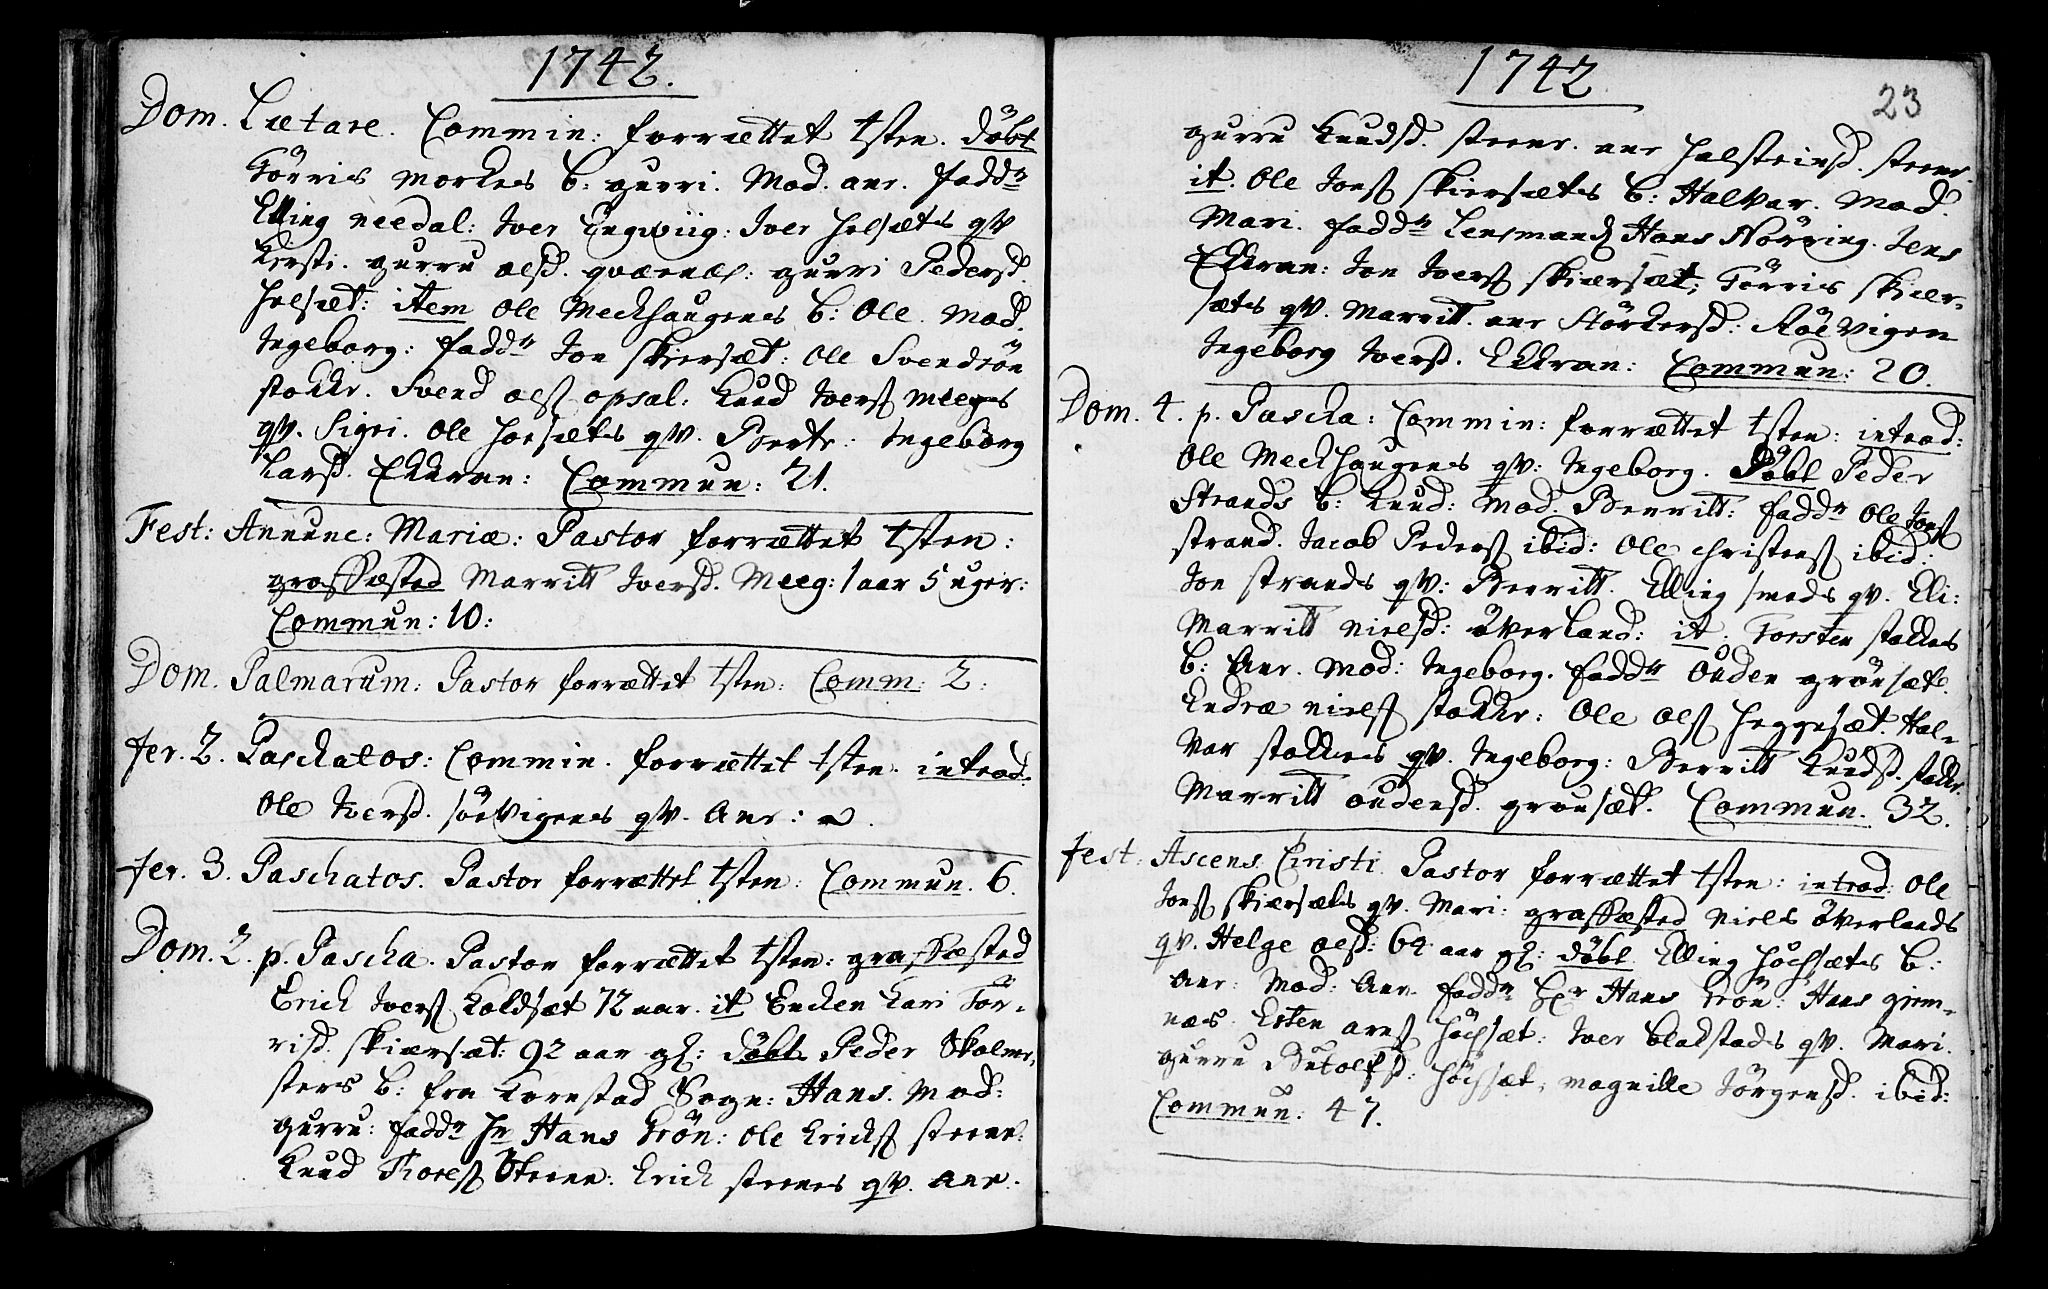 1742.
Dom. Lætare. Commin: forrættet tsten. döbt
Törris Morkes b: gurri. Mod. anr. fadd^r
Elling needal: Iver Engwiig: Iver helsæts qv
Kirsti. gurru olsd. qværnes: gurri Pedersd.
helsæt: item Ole Meckhaugens b: Ole. Mod.
Ingeborg: fadd^r Jon skiersæt: Ole Svendsön
stokke. Svend ols opsal: Knud Ivers Meegs
qv. Sigri. Ole horsæts qv. Berte: Ingeborg
Larsd. Ekkran: Commun: 21.
Fest: Annunc: Mariæ: Pastor forrættet tsten:
graffæsted Marritt Iversd. Meeg: 1 aar 5 uger:
Commun: 10:
Dom. Palmarum: Pastor forrættet tsten: Comm: 2:
fer. 2. Paschatos: Commin. forrættet tsten. introd:
Ole Iversd. sörvigens qv. Anr:
fer. 3. Paschatos. Pastor forrættet tsten: Commun. 6.
Dom. 2. p. Pascha. Pastor forrættet tsten: graffæsted
Erich Ivers Koldsæt 72 aar. it Encken Kari Tör-
risd. skiærsæt: 92 aar gl: döbt Peder Skolme-
sters b: fra Kornstad Sogn: Hans. Mod:
gurru: fadd^r Hr Hans Krön: Ole Ericks steene:
Knud Thores Steene: Erich steenes qv. Anr.
1742
23
gurru Knudsd. steene. anr Halsteinsd. steene.
it. Ole Jons skiersæts b: Halvar. Mod.
Mari. fadd^r Lensmand Hans Nörring. Jens
Ekkran: Jon Ivers skiærsæt: Törris skiær-
sæts qv. Marritt. anr Störkersd: Röevigen
Ingeborg Iversd. Ekkran: Commun: 20.
Dom. 4. p. Pascha: Commin: forrættet tsten: introd:
Ole Meckhaugens qv: Ingeborg. Döbt Peder
Strands b: Knud: Mod. Berritt: fadd^r Ole Jons
strand. Jacob Peders ibid: Ole Christens ibid:
Jon strands qv: Berritt. Elling smeds qv. Eli:
Marritt Nielsd: överland: it. Torsten stokkes
b: Anr. Mod: Ingeborg. fadd^r Ouden grönsæt.
Endræ niels stokke: Ole ols heggesæt. Hal-
var stokkes qv. Ingeborg: Berritt Knudsd. stokke.
Marritt oudensd. grönsæt. Commun. 32.
fest: Ascens. Christi. Pastor forrættet tsten: introd: Ole
Jons skiærsæts qv. Mari: graffæsted Niels överlands
qv. Helge olsd: 64 aar gl: döbt. Elling höchsæts b:
Anr: Mod: Anr. fadd^r Hr Hans Krön: Hans giem-
næs. Esten arns höchsæt: Iver blakstads qv. Mari.
gurru Butolfsd: höchsæt, magnille Jörgensd. ibid:
Commun: 47.